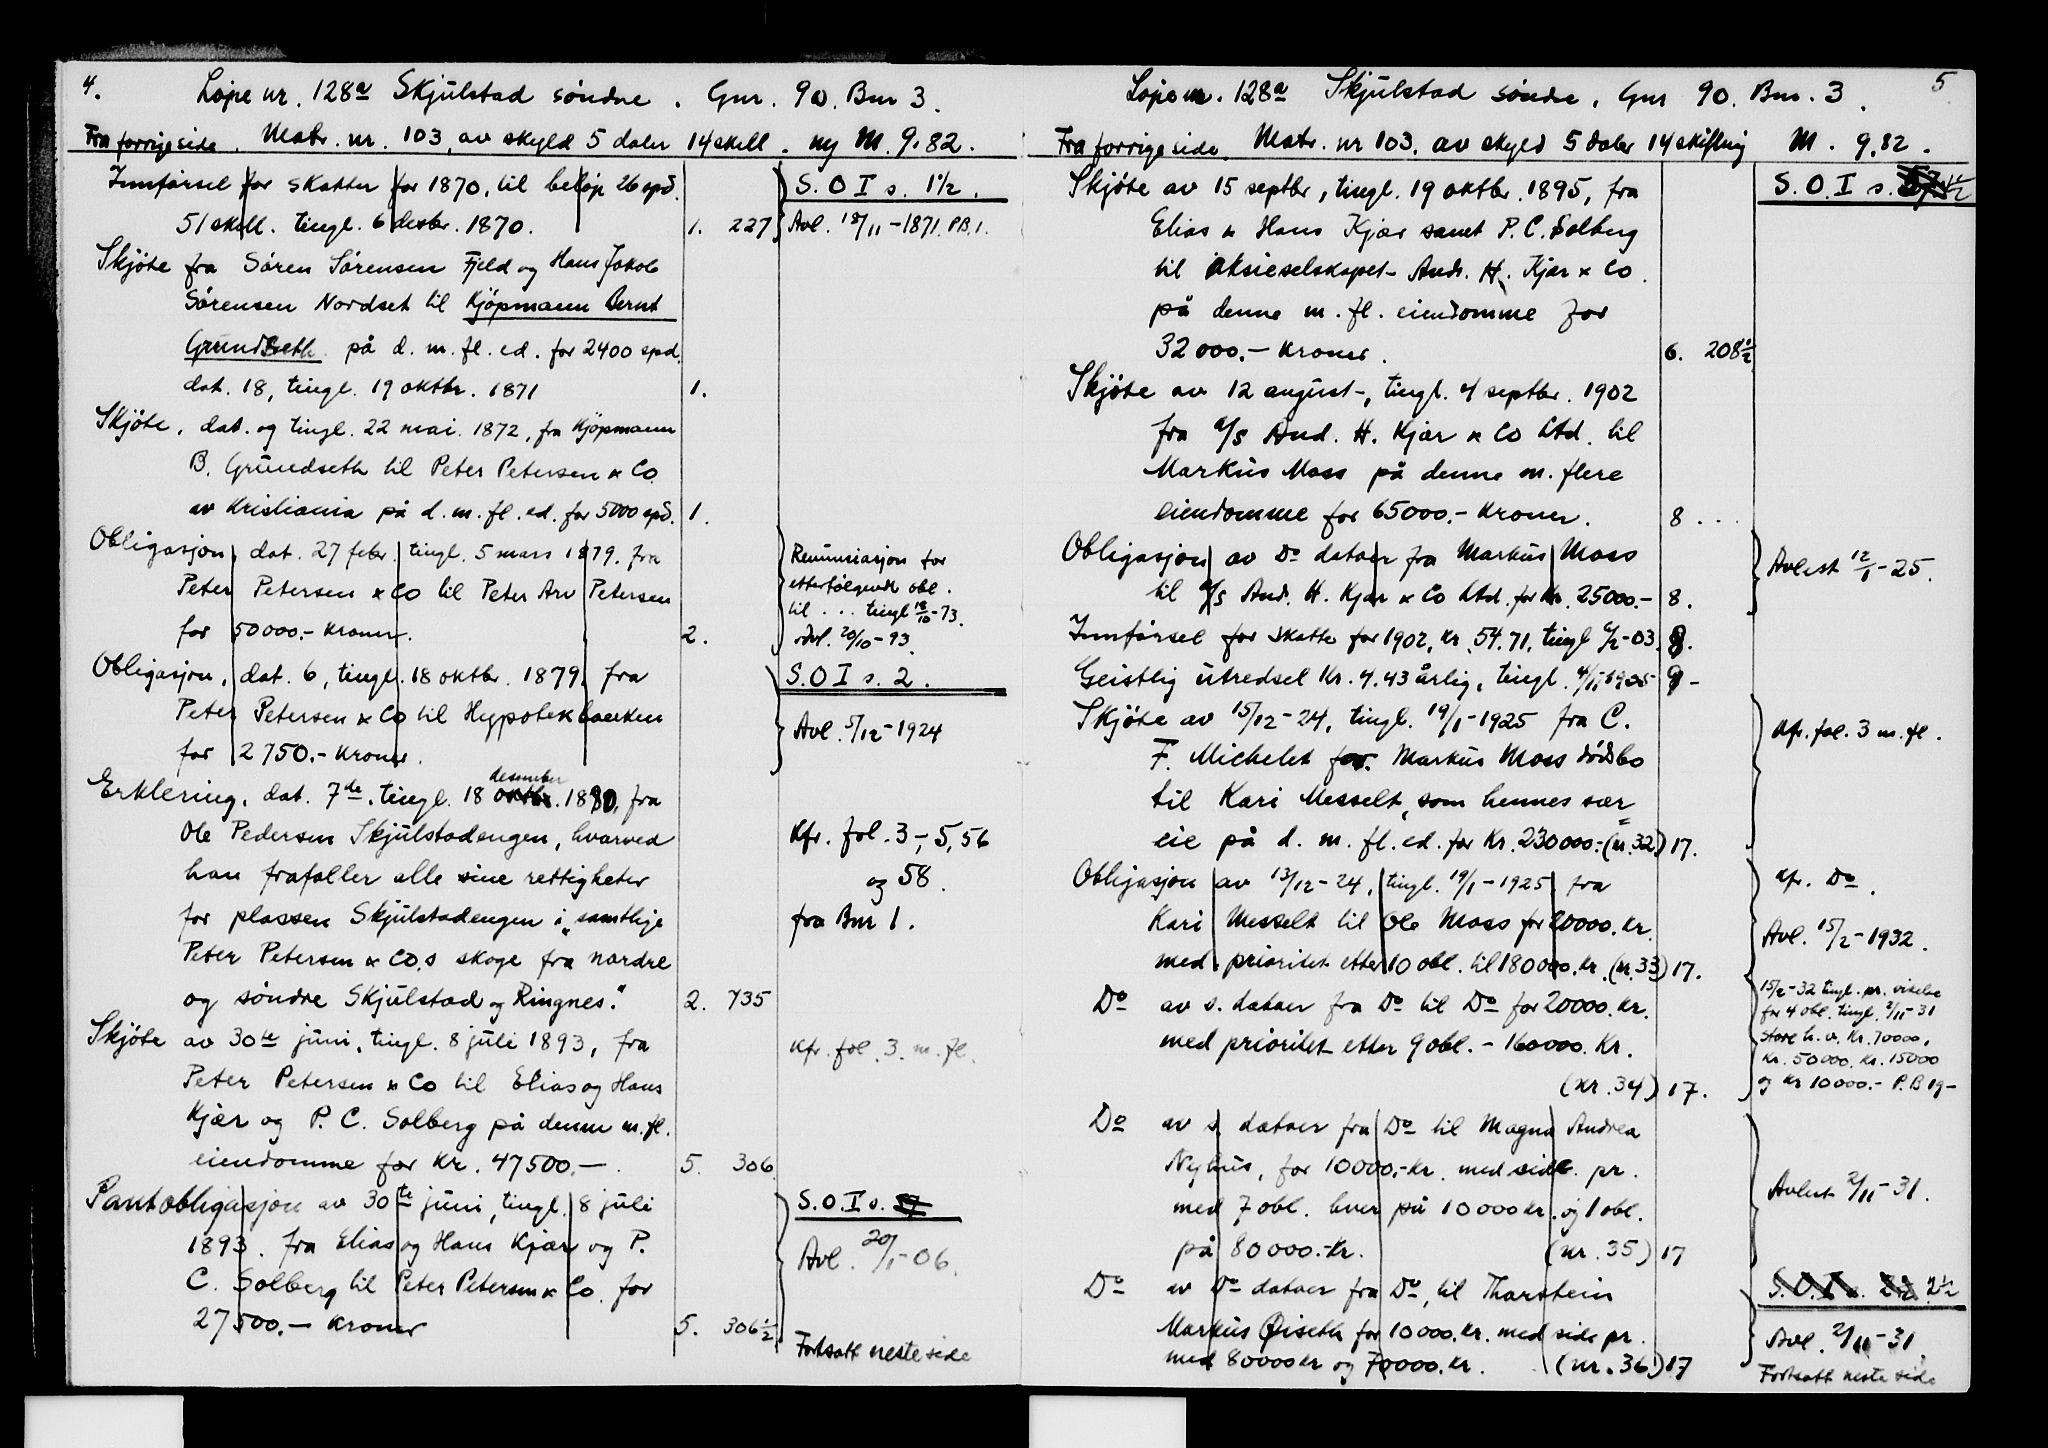 4.
Løpe nr. 128a Skjulstad søndre. Gnr. 90. Bnr 3.
Fra forrige side. Matr. nr. 103, av skyld 5 daler 14 skill. ny M. 9.82.
Innførsel for skatter for 1870, til beløp 26 spd.
51 skill. tingl. 6 desbr. 1870. 1. 227
S.O I s. 1½.
Avl. 18/11-1871. PB.1.
Skjøte fra Søren Sørensen Fjeld og Hans Jakob
Sørensen Nordset til Kjøpmann Bernt
Grundseth på d. m. fl. ed. for 2400 spd.
dat. 18, tingl. 19 oktbr. 1871 1.
Skjøte, dat. og tingl. 22 mai. 1872, fra Kjøpmann
B. Grundseth til Peter Petersen & Co.
av Kristiania på d. m. fl. ed. for 5000 spd. 1.
Obligasjon, dat. 27 febr. tingl. 5 mars 1879. fra
Peter Petersen & Co til Peter Arv Petersen
for 50000.- kroner. 2.
Renunsiasjon for
etterfølgende obl.
til ... tingl 18/10-73.
avl. 20/10-93.
Obligasjon, dat. 6, tingl. 18 oktbr. 1879, fra
Peter Petersen & Co til Hypotekbanken
for 2750.- kroner.
S.O I s. 2.
Avl. 5/12-1924
Erklering, dat. 7de, tingl. 18 oktbr. desember 1880, fra
Ole Pedersen Skjulstadengen, hvorved
han frafaller alle sine rettigheter
for plassen Skjulstadengen i "samtlige
Peter Petersen & Co.s skoge fra nordre
og søndre Skjulstad og Ringnes." 2. 735
Kfr. fol. 3-, 5, 56
og 58.
fra Bnr 1.
Skjøte av 30te juni, tingl. 8 juli 1893, fra
Peter Petersen & Co til Elias og Hans
Kjær og P. C. Solberg på denne m. fl.
eiendomme for Kr. 47500.-. 5. 306
Kfr. fol. 3. m. fl.
Pantobligasjon av 30te juni, tingl. 8 juli
1893. fra Elias og Hans Kjær og P.
C. Solberg til Peter Petersen & Co. for
27500.- kroner 5. 306½
S.O.I s.
Avl. 20/1-06.
Fortsatt neste side
5
Løpenr. 128a Skjulstad søndre. Gnr 90. Bnr. 3.
Fra forrige side. Matr. nr 103. av skyld 5 daler 14 skilling M. 9.82.
Skjøte av 15 septbr, tingl. 19 oktbr. 1895, fra
Elias & Hans Kjær samt P. C. Solberg
til aksieselskapet And. H. Kjær & Co.
på denne m. fl. eiendomme for
32000.- kroner. 6. 208½
S.O.I s.
Skjøte av 12 august-, tingl. 4 septbr. 1902
fra a/s And. H. Kjær & Co Ltd. til
Markus Moss på denne m. flere
eiendomme for 65000.- kroner. 8 ...
Obligasjon av Do datoer fra Markus Moss
til a/s And. H. Kjær & Co Ltd. for Kr. 25000.- 8.
Avlest 12/1-25.
Innførsel for skatte for 1902, Kr. 54.71, tingl 6/2-03. 8.
Geistlig utredsel Kr. 4.43 årlig, tingl. 4/11 1905 9 -
Skjøte av 15/12-24, tingl. 19/1-1925 fra C.
F. Michelet for. Markus Moss dødsbo
til Kari Messelt, som hennes sær=
eie på d. m. fl. ed. for Kr. 230000.- (nr. 32) 17.
Kfr. fol. 3 m. fl.
Obligasjon av 13/12-24, tingl. 19/1-1925 fra
Kari Messelt til Ole Moss for 20000. kr.
med prioritet etter 10 obl. til 180000. kr. (nr. 33) 17.
Kfr. Do.
Avl. 15/2-1932.
Do av s. datoer fra Do til Do for 20000 kr.
med prioritet etter 9 obl. - 160000. Kr.
(nr. 34) 17.
15/2-32 tingl. pr. vikelse
for 4 obl. tingl. 2/11-31
store h. v. Kr. 70000,
Kr. 50000. Kr. 15000
og Kr 10000.- P.B 19-
Do av s. datoer fra Do til Magna Andrea
Nyhus, for 10000.- kr. med side. pr.
med 7 obl. hver på 10000 kr. og 1 obl.
på 80000.- kr. (nr. 35) 17
Avlest 2/11-31.
Do av Do datoer fra Do, til Thorstein
Markus Øiseth for 10000. kr. med side pr.
med 80000 kr og 70000. kr. (nr. 36) 17
S.O.I s. 2½
Avl. 2/11-31.
Fortsatt neste side